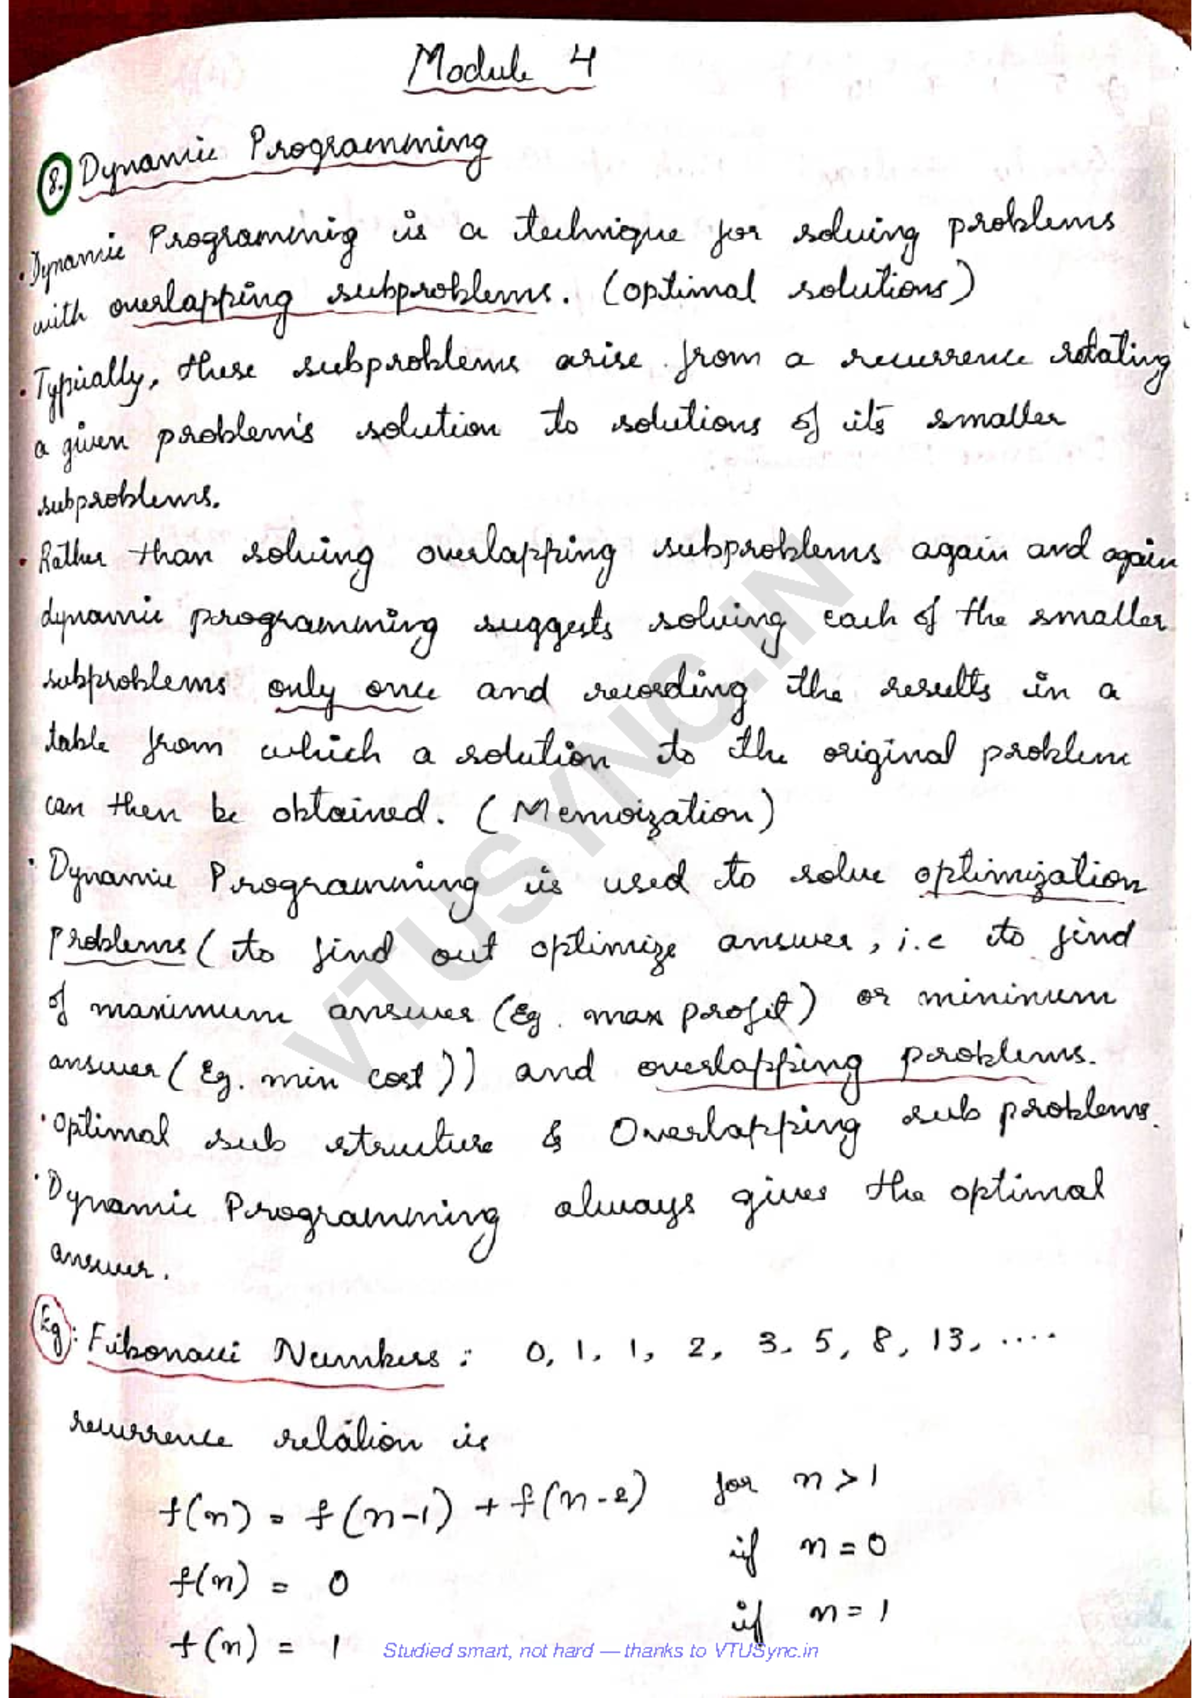 Module 4
8. Dynamic Programming
• Dynamic Programming is a technique for solving problems
with overlapping subproblems. (optimal solutions)
• Typically, these subproblems arise from a recurrence rotating
a given problem's solution to solutions of its smaller
subproblems.
• Rather than solving overlapping subproblems again and again
dynamic programming suggests solving each of the smaller
subproblems only once and recording the results in a
table from which a solution to the original problem
can then be obtained. (Memoization)
• Dynamic Programming is used to solve optimization
problems (to find out optimize answer, i.e to find
of maximum answer (Eg. max profit) or mininum
answer (Eg. min cost)) and overlapping problems.
• optimal sub structure & Overlapping sub problems.
• Dynamic Programming always gives the optimal
answer.
Eg: Fibonacci Numbers: 0, 1, 1, 2, 3, 5, 8, 13, ....
recurrence relation is
f(n) = f(n-1) + f(n-2) for n > 1
f(n) = 0 if n = 0
f(n) = 1 if n = 1
Studied smart, not hard — thanks to VTUSync.in
VTUSYNC.IN